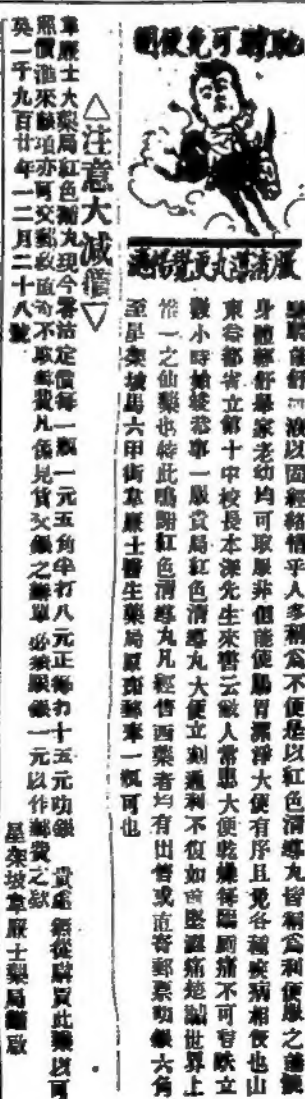 馳騁可免使困
服清導丸更覺暢適
身體輕舒舉家老幼均可取服非但能使腸胃潔淨大便有序且免各種疾病相侵也山
東益都省立第十中校長本深先生來書云鄙人常患大便乾燥每臨廁痛不可言呋立
數小時始能蕆事一服貴局紅色清導丸大便立刻通利不復如前堅澀痛楚誠世界上
惟一之仙藥也特此鳴謝紅色清導丸凡經售西藥者均有出售或直寄郵票叻銀六角
至星架坡馬六甲街韋廉士醫生藥局原班郵奉一瓶可也
△注意大減價▽
韋廉士大藥局紅色清導丸現今零沽定價每一瓶一元五角半打八元正每打十五元叻銀 貴處無從購買此藥以可
照價滙來款項亦可交郵政直寄不取郵費凡係見貨交銀之辦單必須跟銀一元以作郵費之款
英一千九百廿年一二月二十八號
星架坡韋廉士藥局謹啟